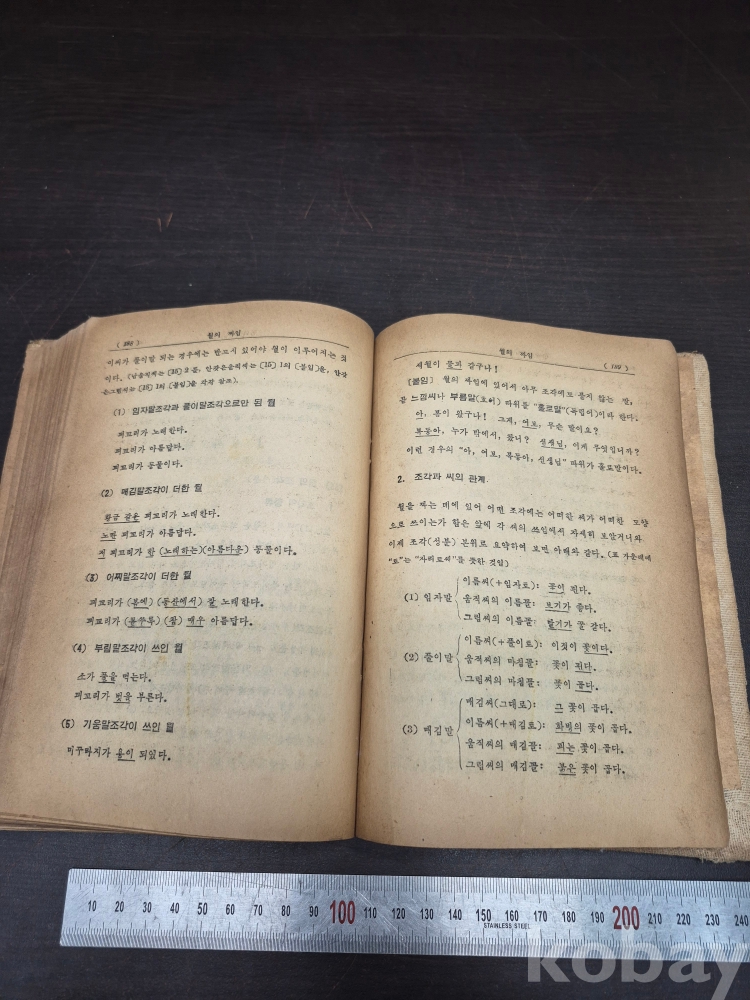 ( 188 )
월의 짜임
이씨가 풀이말 되는 경우에는 반드시 있어야 월이 이루어지는 것
이다.
(1) 임자말조각과 풀이말조각으로만 된 월
꾀꼬리가 노래한다.
꾀꼬리가 아름답다.
꾀꼬리가 동물이다.
(2) 매김말조각이 더한 월
황금 같은 꾀꼬리가 노래한다.
노란 꾀꼬리가 아름답다.
저 꾀꼬리가 한 (노래하는)(아름다운) 동물이다.
(3) 어찌말조각이 더한 월
꾀꼬리가 (봄에) (동산에서) 잘 노래한다.
꾀꼬리가 (퍽) 매우 아름답다.
(4) 부림말조각이 쓰인 월
소가 풀을 먹는다.
꾀꼬리가 벗을 부른다.
(5) 기움말조각이 쓰인 월
미꾸라지가 용이 되었다.
월의 짜임
( 189 )
세월이 물과 같구나!
[붙임] 월의 짜임에 있어서 아무 조각에도 붙지 않는 말,
곧 느낌씨나 부름말(호어) 따위를 "홀로말"(독립어)이라 한다.
아, 봄이 왔구나! 그게, 여보, 무슨 말이요?
복동아, 누가 밖에서, 왔니? 선생님, 이게 무엇입니까?
이런 경우의 "아, 여보, 복동아, 선생님" 따위가 홀로말이다.
2. 조각과 씨의 관계.
월을 짜는 데에 있어 어떤 조각에는 어떠한 씨가 어떠한 모양
으로 쓰이는가 함은 앞에 각 씨의 쓰임에서 자세히 보았거니와
이제 조각(성분) 본위로 요약하여 보면 아래와 같다. (표 가운데에
"토"는 "자리토씨"를 뜻한 것임)
(1) 임자말
이름씨(+임자토): 꽃이 핀다.
움직씨의 이름꼴: 보기가 좋다.
그림씨의 이름꼴: 붉기가 꼭 같다.
(2) 풀이말
이름씨(+풀이토): 이것이 꽃이다.
움직씨의 마침꼴: 꽃이 핀다.
그림씨의 마침꼴: 꽃이 곱다.
(3) 매김말
매김씨(그대로): 그 꽃이 곱다.
이름씨(+매김토): 화병의 꽃이 곱다.
움직씨의 매김꼴: 피는 꽃이 곱다.
그림씨의 매김꼴: 붉은 꽃이 곱다.
10 20 30 40 50 60 70 80 90 100 110 120 130 140 150 160 170 180 190 200 210 220 230 240
STAINLESS STEEL
kobay